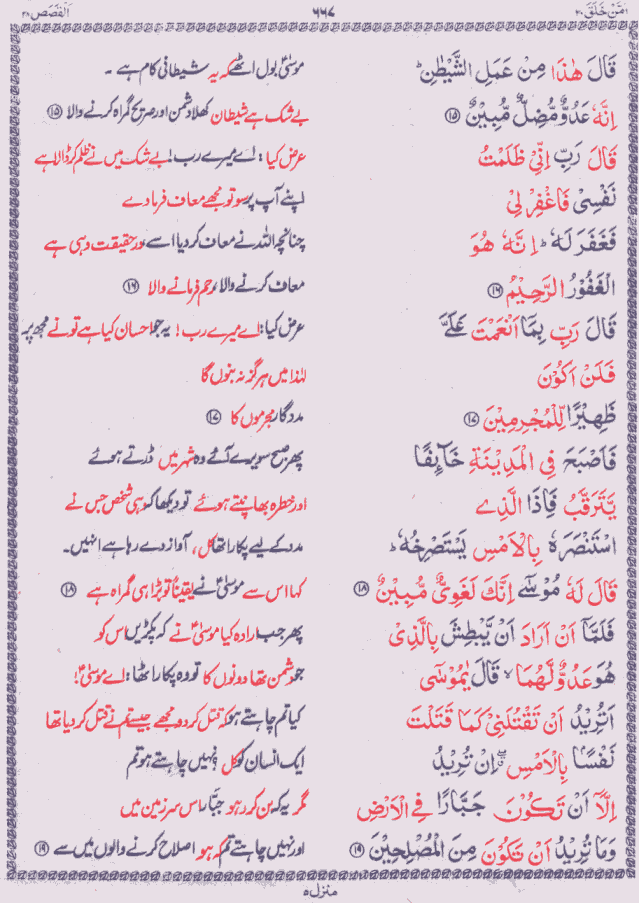 اَمَّنْ خَلَقَ ٢٠ ٦٦٧ اَلْقَصَص ٢٨
قَالَ هٰذَا مِنْ عَمَلِ الشَّيْطٰنِ ؕ موسٰیؑ بول اٹھے کہ یہ شیطانی کام ہے ۔
اِنَّهٗ عَدُوٌّ مُّضِلٌّ مُّبِيْنٌ ﴿۱۵﴾ بے شک ہے شیطان کھلا دشمن اور صریح گمراہ کرنے والا ﴿۱۵﴾
قَالَ رَبِّ اِنِّيْ ظَلَمْتُ عرض کیا: اے میرے رب! بے شک میں نے ظلم کر ڈالا ہے
نَفْسِيْ فَاغْفِرْ لِيْ اپنے آپ پر سو تو مجھے معاف فرما دے
فَغَفَرَ لَهٗ ؕ اِنَّهٗ هُوَ چنانچہ اللہ نے معاف کر دیا اسے، در حقیقت وہی ہے
الْغَفُوْرُ الرَّحِيْمُ ﴿۱۶﴾ معاف کرنے والا، رحم فرمانے والا ﴿۱۶﴾
قَالَ رَبِّ بِمَاۤ اَنْعَمْتَ عَلَيَّ عرض کیا: اے میرے رب! یہ جو احسان کیا ہے تو نے مجھ پر
فَلَنْ اَكُوْنَ لہٰذا میں ہرگز نہ بنوں گا
ظَهِيْرًا لِّلْمُجْرِمِيْنَ ﴿۱۷﴾ مددگار مجرموں کا ﴿۱۷﴾
فَاَصْبَحَ فِي الْمَدِيْنَةِ خَآىِٕفًا پھر صبح سویرے آئے وہ شہر میں ڈرتے ہوئے
يَّتَرَقَّبُ فَاِذَا الَّذِے اور خطرہ بھانپتے ہوئے تو دیکھا کہ وہی شخص جس نے
اسْتَنْصَرَهٗ بِالْاَمْسِ يَسْتَصْرِخُهٗ ؕ مدد کے لیے پکارا تھا کل، آواز دے رہا ہے انہیں۔
قَالَ لَهٗ مُوْسٰۤى اِنَّكَ لَغَوِيٌّ مُّبِيْنٌ ﴿۱۸﴾ کہا اس سے موسٰیؑ نے یقیناً تو بڑا ہی گمراہ ہے ﴿۱۸﴾
فَلَمَّاۤ اَنْ اَرَادَ اَنْ يَّبْطِشَ بِالَّذِيْ پھر جب ارادہ کیا موسٰیؑ نے کہ پکڑیں اس کو
هُوَ عَدُوٌّ لَّهُمَا ۙ قَالَ يٰمُوْسٰۤى جو دشمن تھا دونوں کا تو وہ پکار اٹھا: اے موسٰیؑ!
اَتُرِيْدُ اَنْ تَقْتُلَنِيْ كَمَا قَتَلْتَ کیا تم چاہتے ہو کہ قتل کر دو مجھے جیسے تم نے قتل کر دیا تھا
نَفْسًۢا بِالْاَمْسِ ۖ اِنْ تُرِيْدُ ایک انسان کو کل؟ نہیں چاہتے ہو تم
اِلَّاۤ اَنْ تَكُوْنَ جَبَّارًا فِي الْاَرْضِ مگر یہ کہ بن کر رہو جبّار اس سرزمین میں
وَمَا تُرِيْدُ اَنْ تَكُوْنَ مِنَ الْمُصْلِحِيْنَ ﴿۱۹﴾ اور نہیں چاہتے تم کہ ہو اصلاح کرنے والوں میں سے ﴿۱۹﴾
منزل ۵